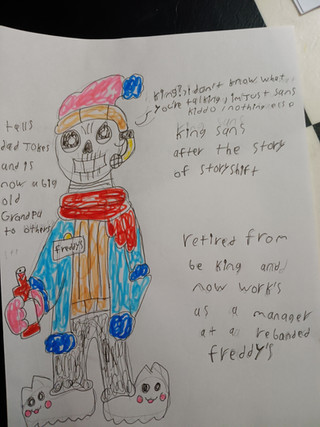 King? i don't know what
you're talking, im Just sans
kiddo, nothing esso
King sans
after the story
of storyshift
tells
dad Jokes
and is
now a big
old
Grandpa
to others
freddy's
retired from
be King and
now work's
as a manager
at a rebanded
freddy's